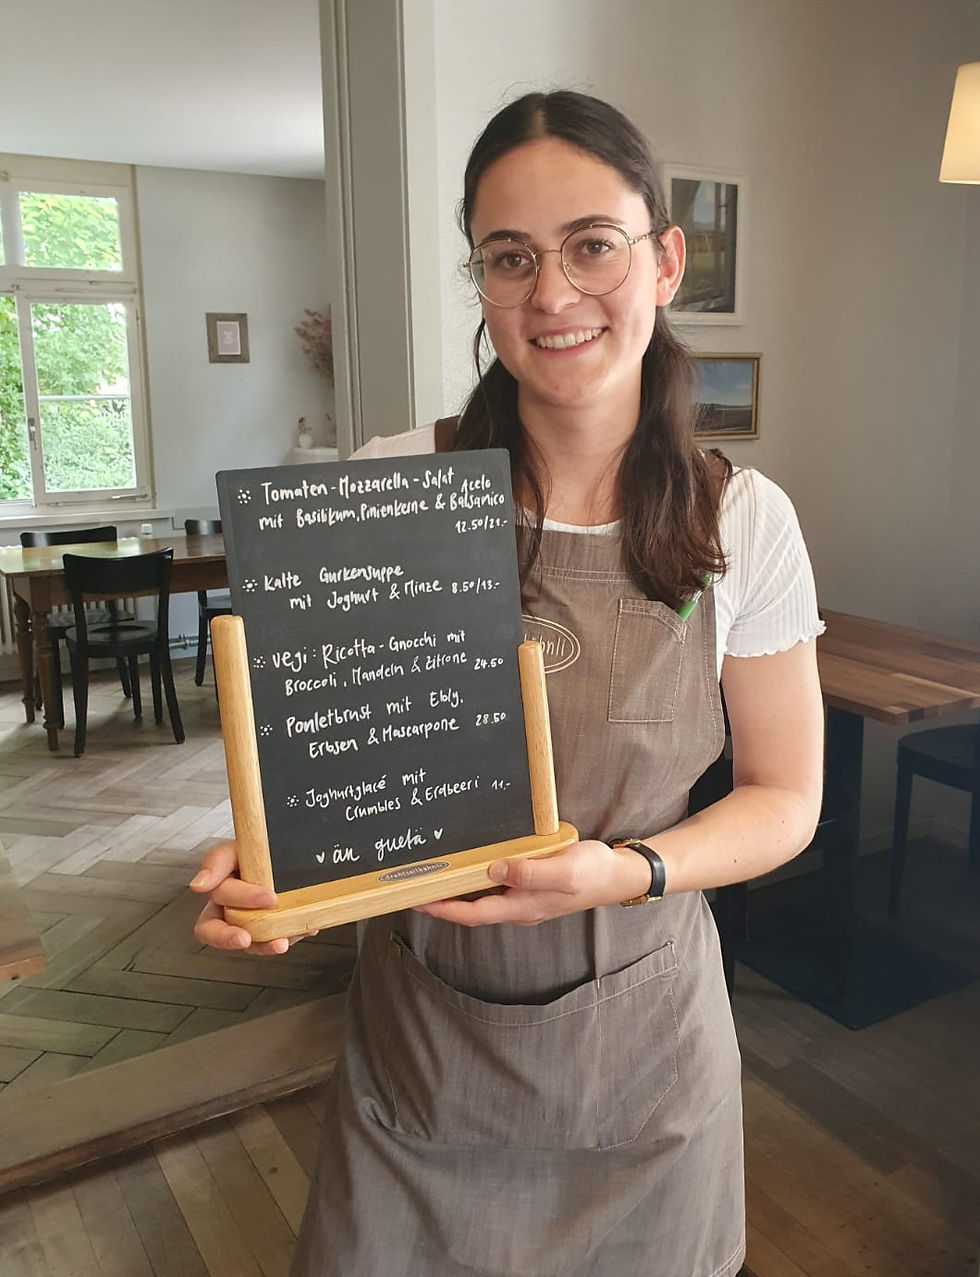 Tomaten-Mozzarella-Salat
mit Basilikum, Pinienkerne & Aceto Balsamico
12.50/21.-
Kalte Gurkensuppe
mit Joghurt & Minze 8.50/13.-
vegi: Ricotta-Gnocchi mit
Broccoli, Mandeln & Zitrone 24.50
Pouletbrust mit Ebly,
Erbsen & Mascarpone 28.50
Joghurtglacé mit
Crumbles & Erdbeeri 11.-
♥ än guetä ♥
drahtseilbähnli
ähnli